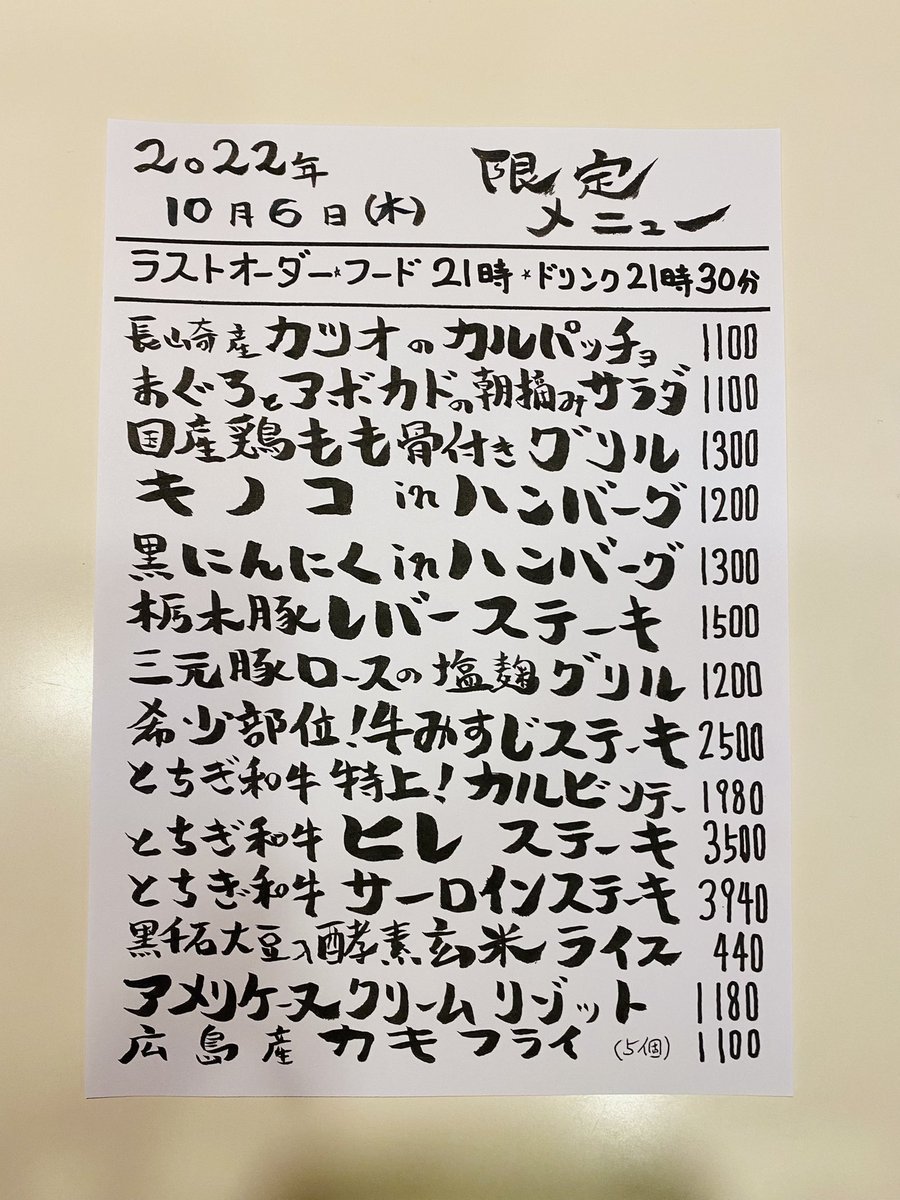 2022年 限定
10月6日(木) メニュー
ラストオーダー☆フード 21時 ☆ドリンク21時30分
長崎産 カツオのカルパッチョ 1100
まぐろとアボカドの朝摘みサラダ 1100
国産鶏もも骨付きグリル 1300
キノコ in ハンバーグ 1200
黒にんにく in ハンバーグ 1300
栃木豚レバーステーキ 1500
三元豚ロースの塩麹グリル 1200
希少部位!牛みすじステーキ 2500
とちぎ和牛 特上!カルビステー 1980
とちぎ和牛 ヒレ ステーキ 3500
とちぎ和牛 サーロインステーキ 3940
黒千石大豆入酵素玄米ライス 440
アメリケーヌクリームリゾット 1180
広島産 カキフライ (5個) 1100